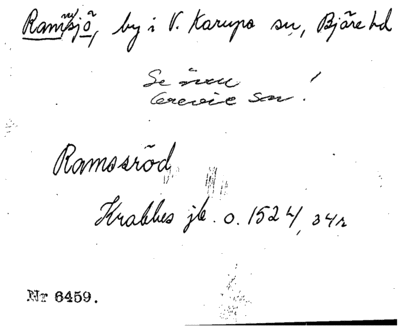 Ramsjö, by i V. Karups sn, Bjäre hd
Se även
Grevie sn!
Ramssröd
Krabbes jb. o. 1524, 34r
Nr 6459.